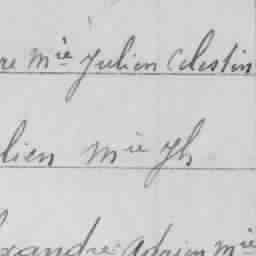 re Mie Julien Celestin
lien Mie Jh
exandre Adrien Mie